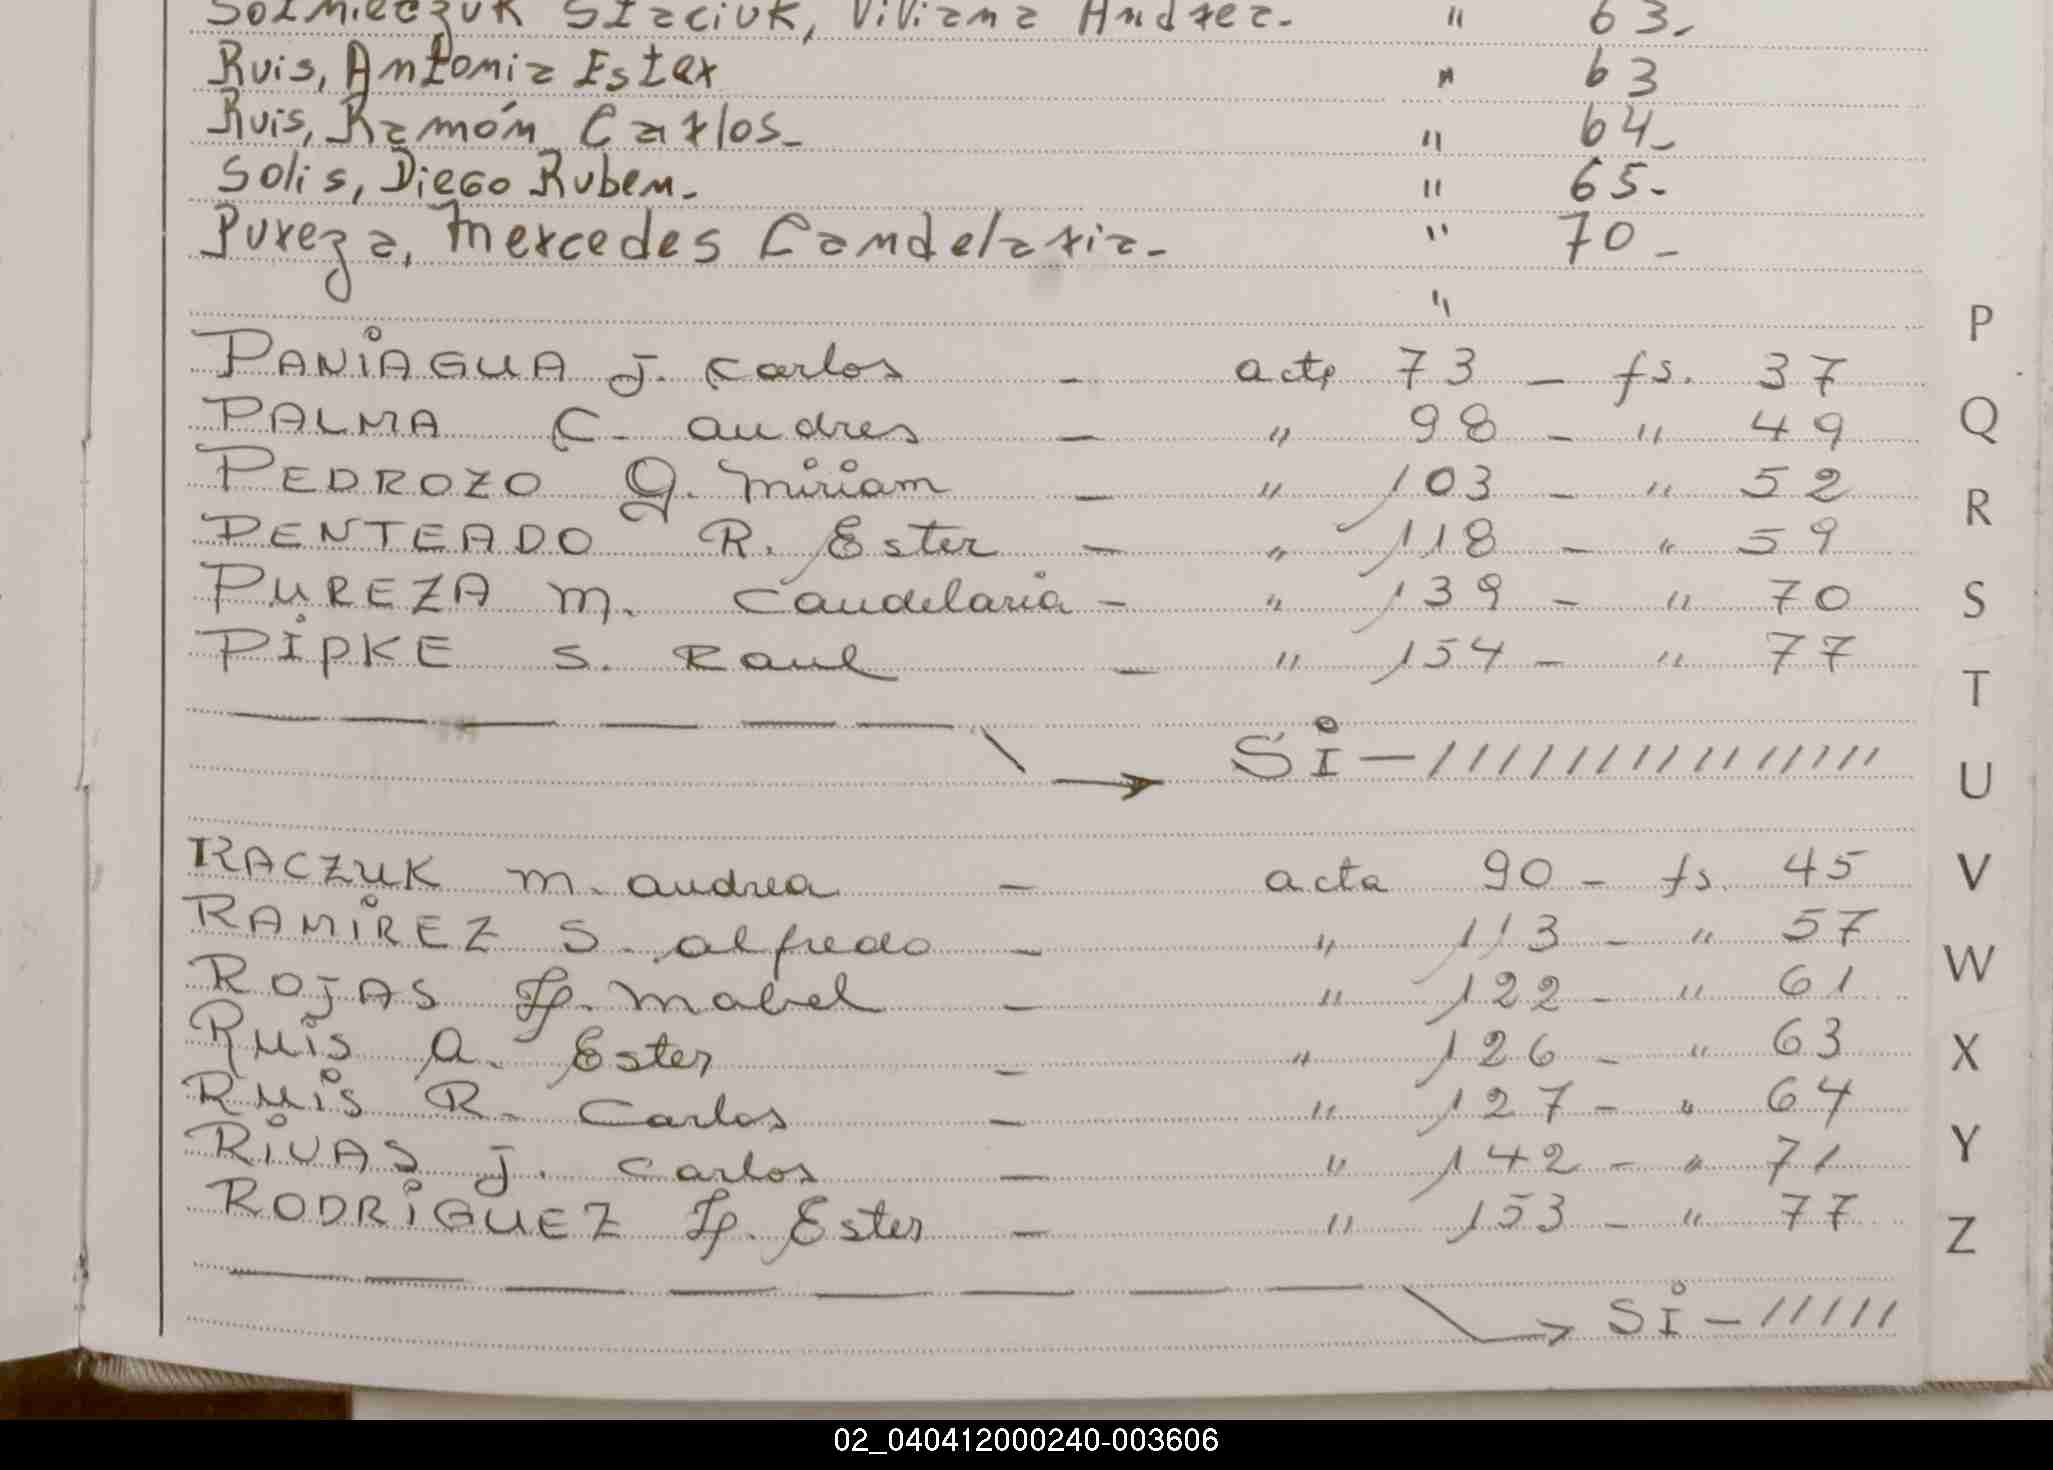 Sotnieczuk Staciuk, Viviana Andrea. " 63.
Ruis, Antonia Ester " 63
Ruis, Ramón Carlos. " 64.
Solis, Diego Ruben. " 65.
Pureza, Mercedes Candelaria. " 70.
"
PANIAGUA J. Carlos - acta 73 - fs. 37
PALMA C. Andres - " 98 - " 49
PEDROZO G. Miriam - " 103 - " 52
PENTEADO R. Ester - " 118 - " 59
PUREZA M. Candelaria - " 139 - " 70
PIPKE S. Raul - " 154 - " 77
SI - ///////////////
RACZUK M. Andrea - acta 90 - fs. 45
RAMIREZ S. Alfredo - " 113 - " 57
ROJAS Mabel - " 122 - " 61
RUIS A. Ester - " 126 - " 63
RUIS R. Carlos - " 127 - " 64
RIVAS J. Carlos - " 142 - " 71
RODRIGUEZ Ester - " 153 - " 77
SI - /////
P
Q
R
S
T
U
V
W
X
Y
Z
02_040412000240-003606